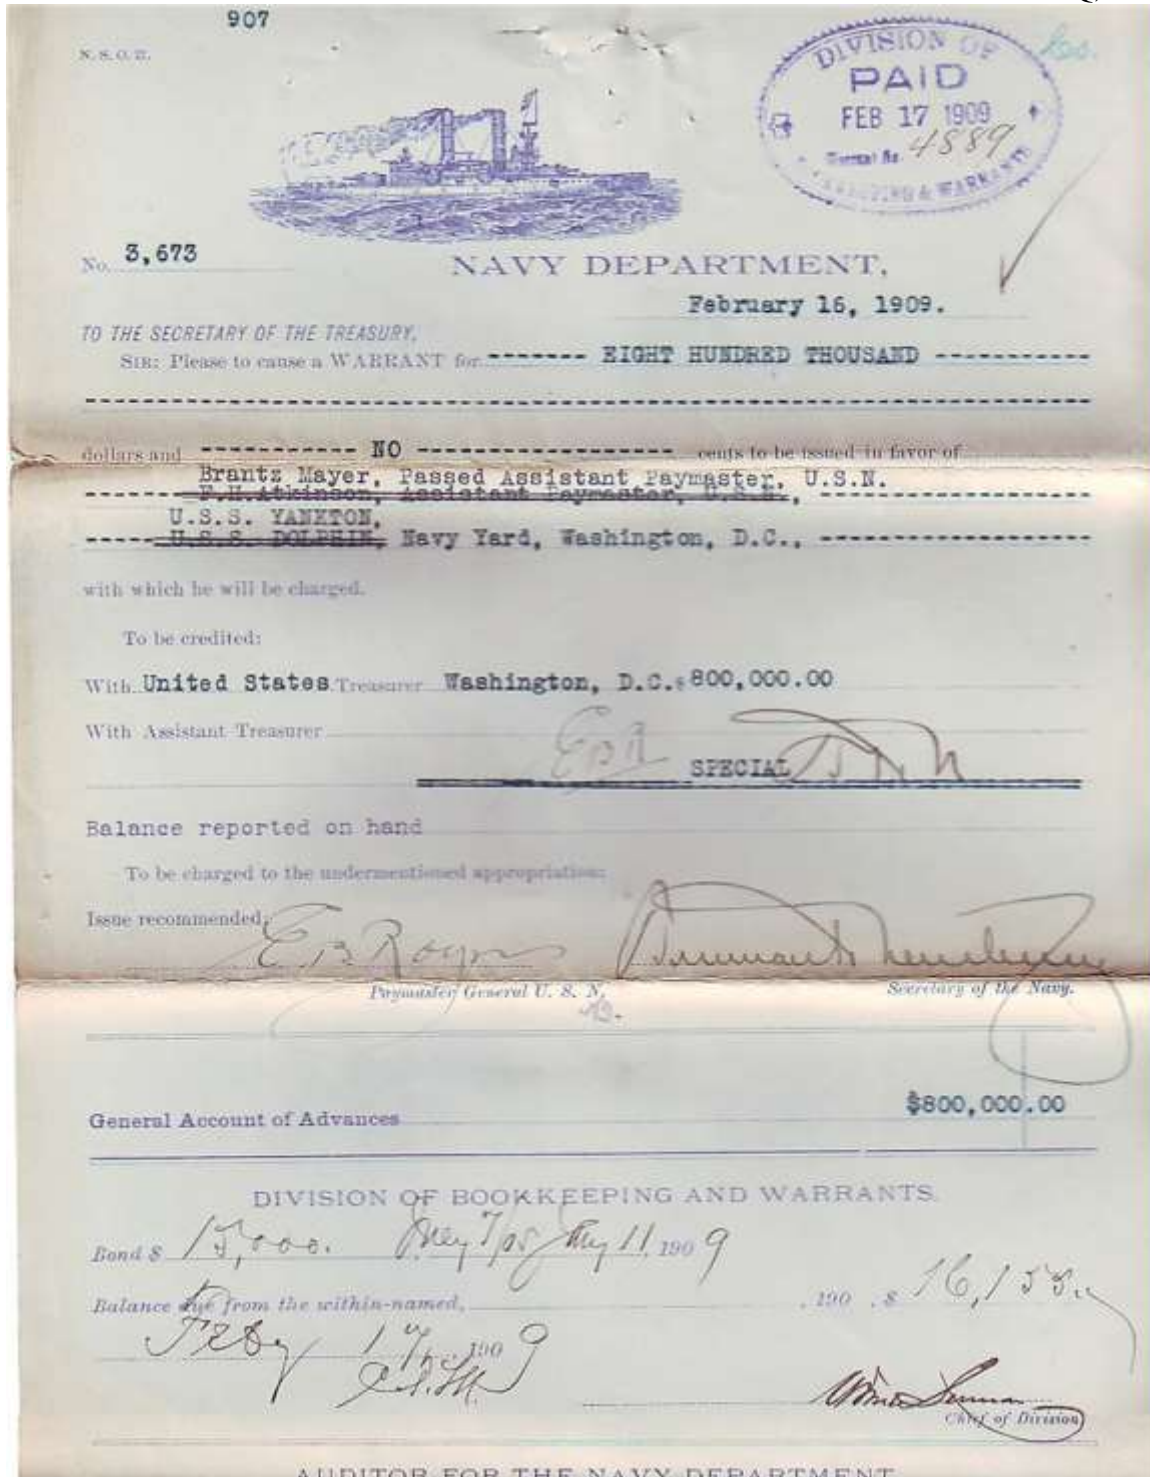 907
N. S. O. II.
DIVISION OF
PAID
FEB 17 1909
4889
& WARRANTS
No. 3,673
NAVY DEPARTMENT,
February 16, 1909.
TO THE SECRETARY OF THE TREASURY.
SIR: Please to cause a WARRANT for ------- EIGHT HUNDRED THOUSAND -----------
dollars and ----------- NO ------------------ cents to be issued in favor of
Brantz Mayer, Passed Assistant Paymaster, U.S.N.
F.H.Atkinson, Assistant Paymaster, U.S.N.,
U.S.S. YANKTON,
U.S.S. DOLPHIN, Navy Yard, Washington, D.C.,
with which he will be charged.
To be credited:
With United States Treasurer Washington, D.C. $800,000.00
With Assistant Treasurer
EBR SPECIAL
Balance reported on hand
To be charged to the undermentioned appropriation:
Issue recommended,
E. B. Rogers
Paymaster General U. S. N. Secretary of the Navy.
General Account of Advances $800,000.00
DIVISION OF BOOKKEEPING AND WARRANTS.
Bond $ 15,000. 11, 1909
Balance due from the within-named, , 190 , $ 16,153.
Feby 17, 1909
Chief of Division
AUDITOR FOR THE NAVY DEPARTMENT